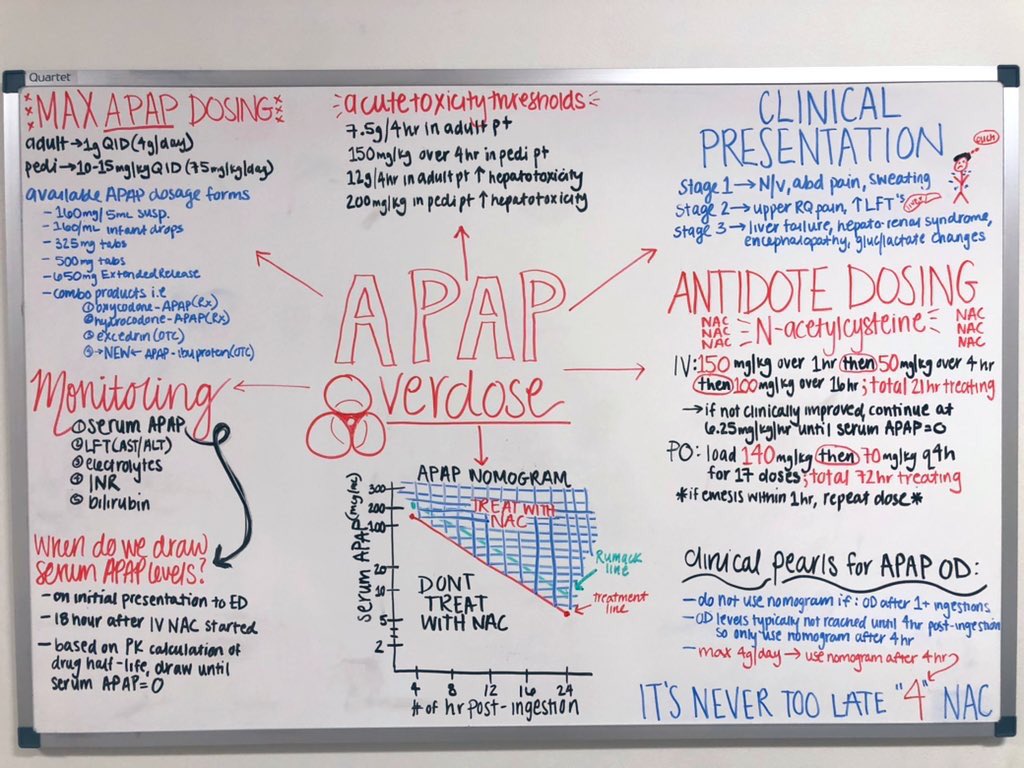 Quartet
MAX APAP DOSING
adult → 1g QID (4g/day)
pedi → 10-15mg/kg QID (75mg/kg/day)
available APAP dosage forms
- 160mg/5mL susp.
- 160/mL infant drops
- 325mg tabs
- 500mg tabs
- 650mg Extended Release
- combo products i.e
① oxycodone-APAP (Rx)
② hydrocodone-APAP (Rx)
③ excedrin (OTC)
④ →NEW← APAP-ibuprofen (OTC)
Monitoring
① serum APAP
② LFT (AST/ALT)
③ electrolytes
④ INR
⑤ bilirubin
When do we draw
serum APAP levels?
- on initial presentation to ED
- 18 hour after IV NAC started
- based on PK calculation of
drug half-life, draw until
serum APAP=0
acute toxicity thresholds
7.5g/4hr in adult pt
150mg/kg over 4hr in pedi pt
12g/4hr in adult pt ↑ hepatotoxicity
200mg/kg in pedi pt ↑ hepatotoxicity
APAP
Overdose
APAP NOMOGRAM
serum APAP (mg/mL)
300
200
100
20
10
5
2
TREAT WITH
NAC
DONT
TREAT
WITH NAC
Rumack
line
treatment
line
4 8 12 16 24
# of hr post-ingestion
CLINICAL
PRESENTATION
OUCH
Stage 1 → N/V, abd pain, sweating
Stage 2 → upper RQ pain, ↑ LFT's
liver
Stage 3 → liver failure, hepato-renal syndrome,
encephalopathy, gluc/lactate changes
ANTIDOTE DOSING
NAC
NAC
NAC
N-acetylcysteine
NAC
NAC
NAC
IV: 150 mg/kg over 1hr then 50mg/kg over 4 hr
then 100mg/kg over 16hr; total 21hr treating
→ if not clinically improved, continue at
6.25mg/kg/hr until serum APAP=0
PO: load 140mg/kg then 70mg/kg q4h
for 17 doses; total 72hr treating
*if emesis within 1hr, repeat dose*
clinical pearls for APAP OD:
- do not use nomogram if: OD after 1+ ingestions
- OD levels typically not reached until 4hr post-ingestion
so only use nomogram after 4hr
- max 4g/day → use nomogram after 4hr
IT'S NEVER TOO LATE "4" NAC